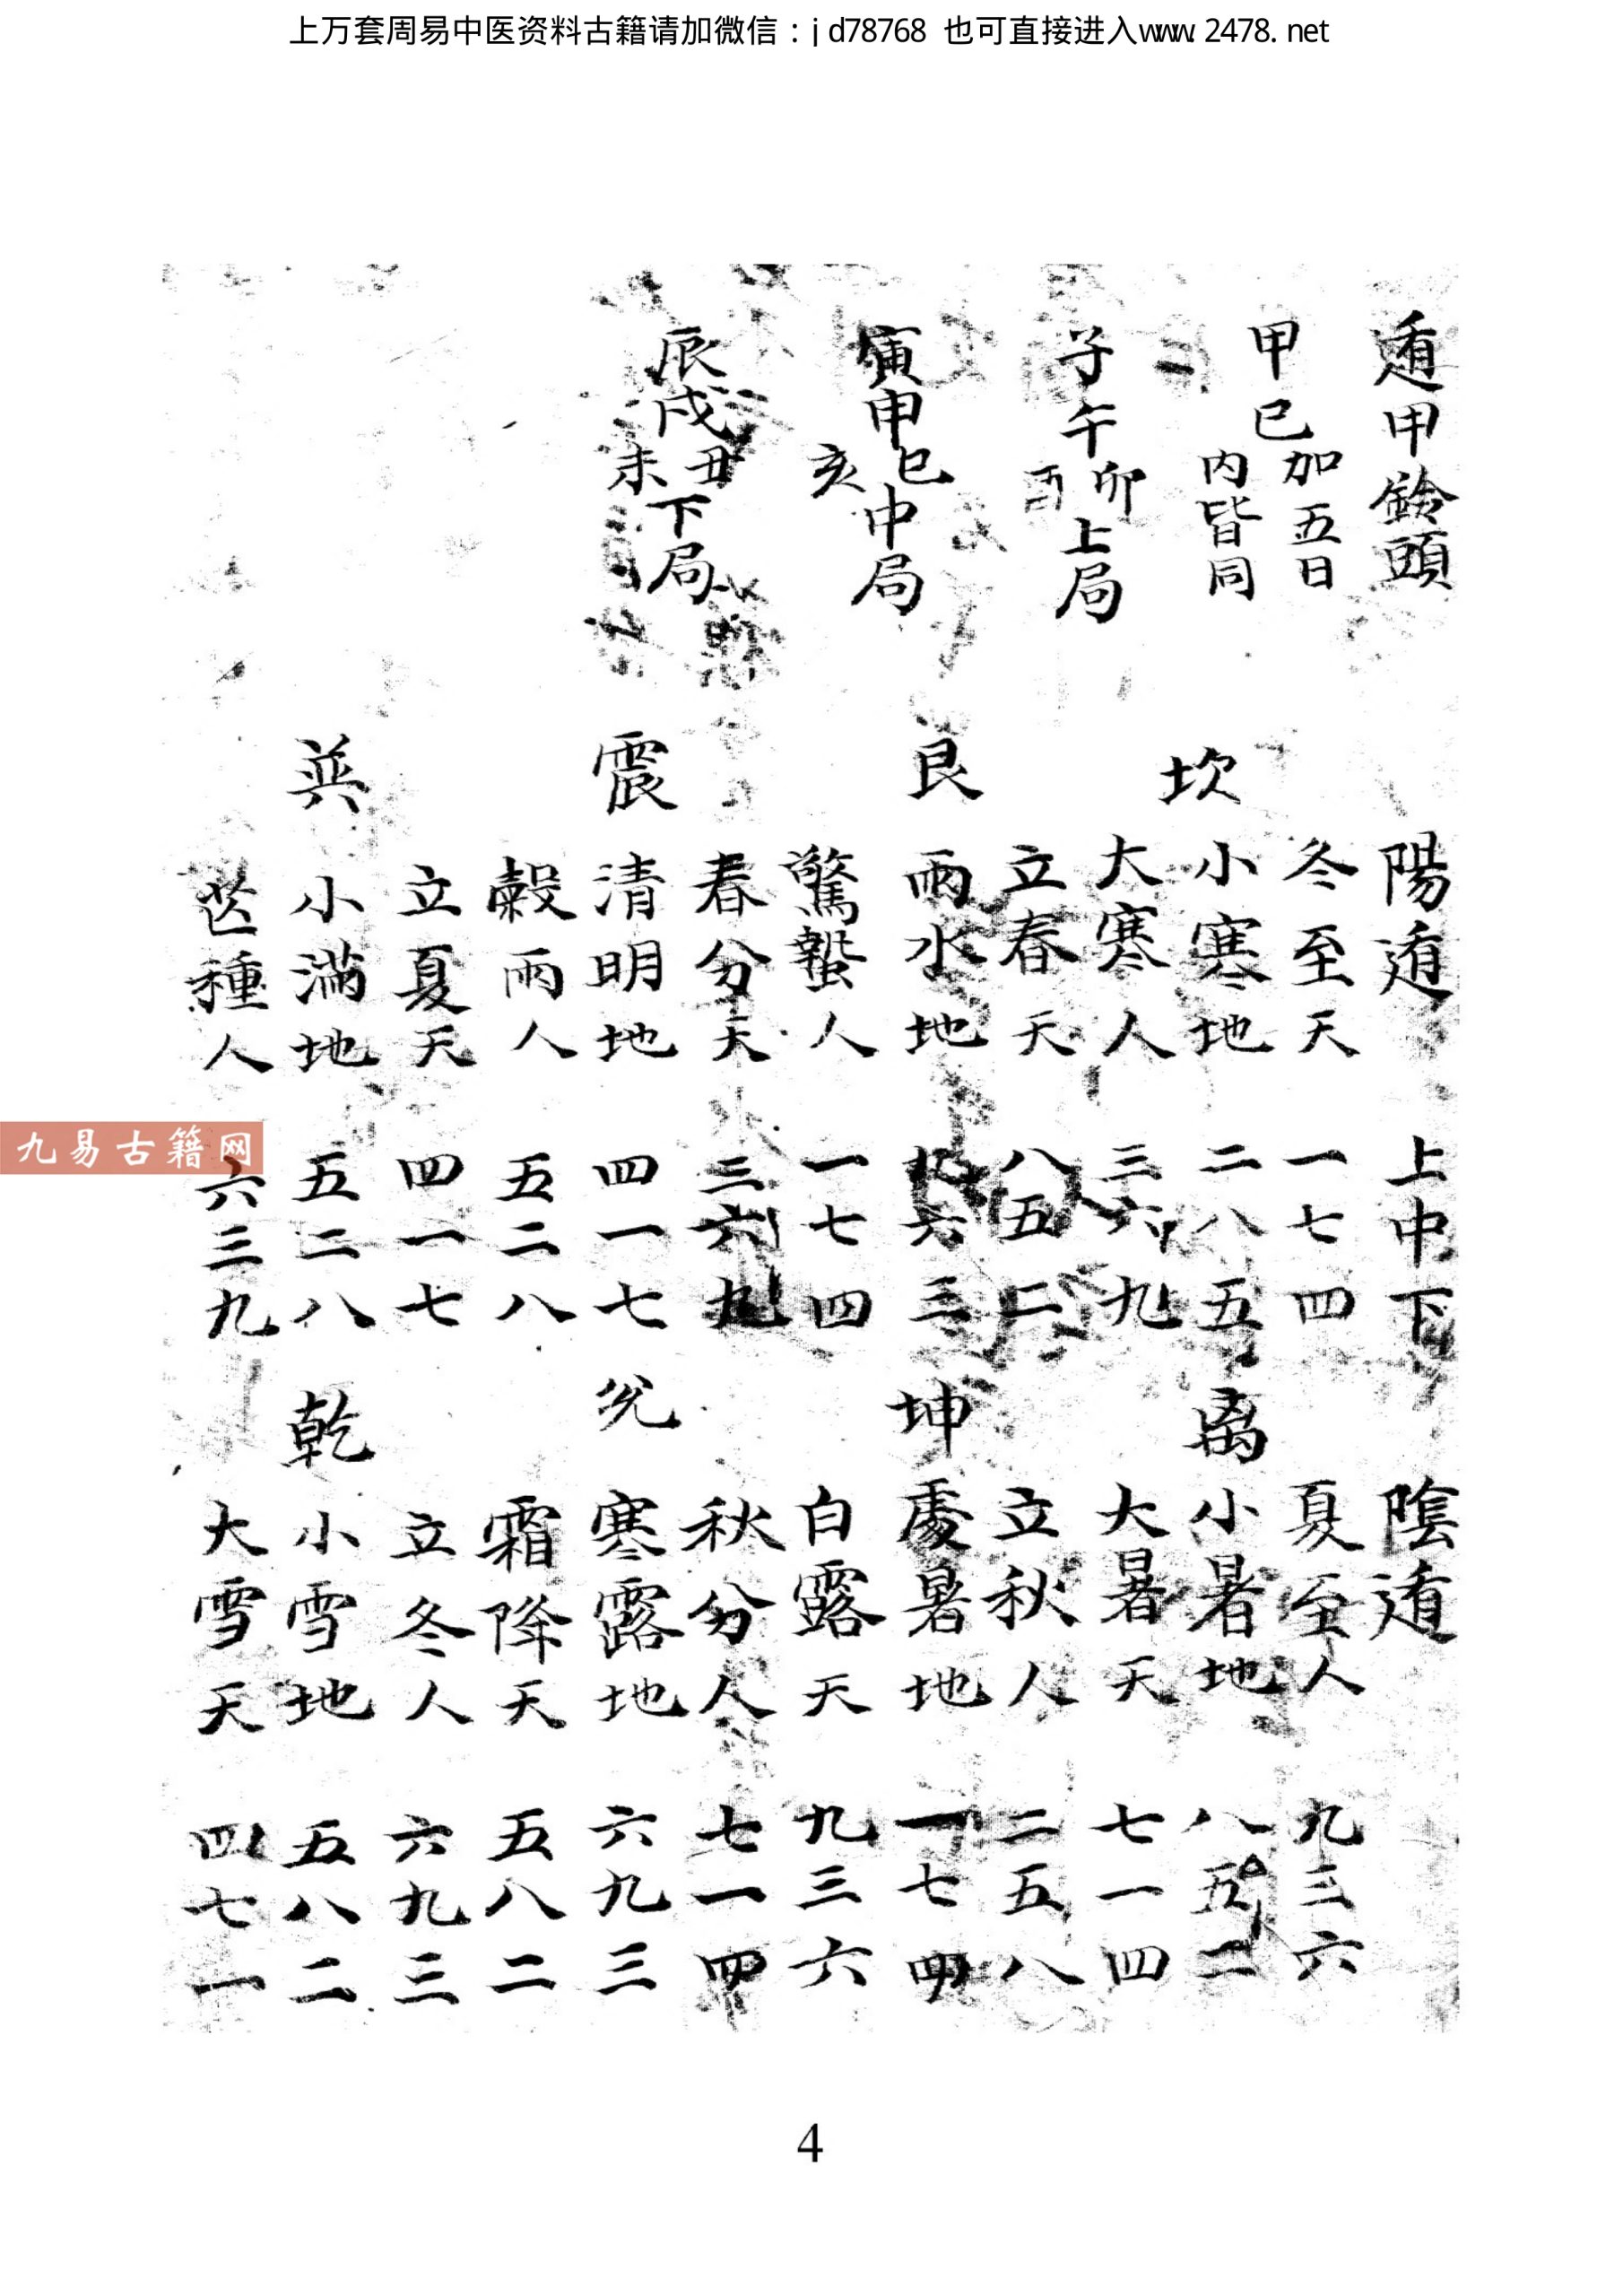 上万套周易中医资料古籍请加微信：jd78768 也可直接进入www.2478.net
遁甲鈴頭
甲巳加五日内皆同
子午卯酉上局
寅申巳亥中局
辰戌丑未下局
陽遁 上中下
冬至天 一七四
坎 小寒地 二八五
大寒人 三六九
立春天 八五二
艮 雨水地 九六三
驚蟄人 一七四
春分天 三六九
震 清明地 四一七
穀雨人 五二八
立夏天 四一七
巽 小滿地 五二八
芒種人 六三九
陰遁
夏至人 九三六
离 小暑地 八五二
大暑天 七一四
立秋人 二五八
坤 處暑地 一七四
白露天 九三六
秋分人 七一四
兊 寒露地 六九三
霜降天 五八二
立冬人 六九三
乾 小雪地 五八二
大雪天 四七一
九易古籍网
4